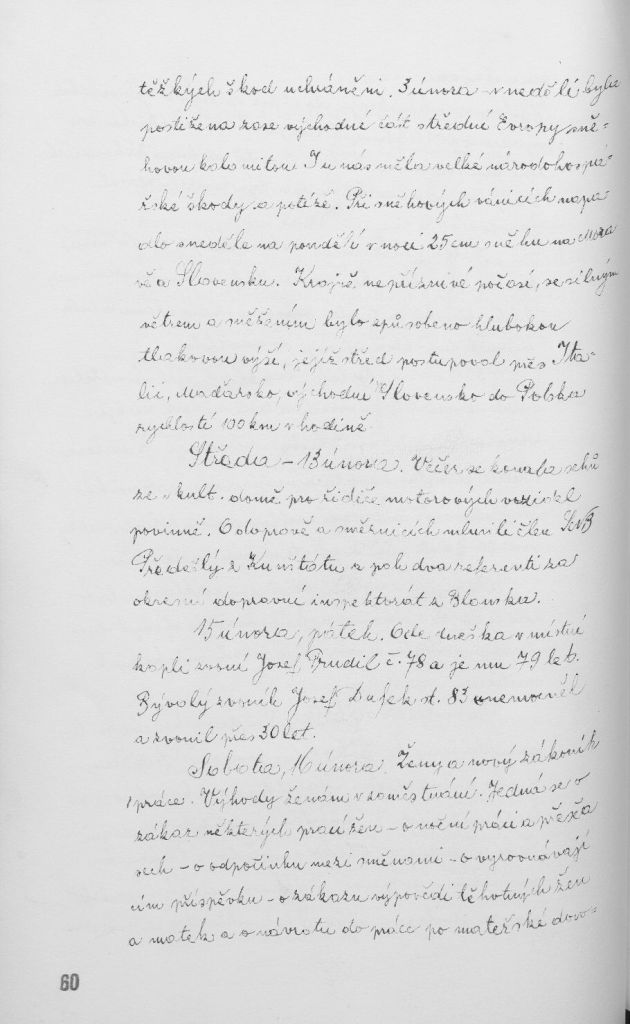 těžkých škod uchráněni. 3 února - v neděli byla
postižena zase východní část střední Evropy sně-
hovou kalamitou. I u nás měla velké národohospá-
řské škody a potíže. Při sněhových vánicích napa
dlo s neděle na pondělí v noci 25 cm sněhu na Mora
vě a Slovensku. Krajně nepříznivé počasí, se silným
větrem a sněžením bylo způsobeno hlubokou
tlakovou výší, jejíž střed postupoval přes Itá-
lii, Maďarsko, východní Slovensko do Polska
rychlostí 100 km v hodině.
Středa - 13 února. Večer se konala schů
ze v kult. domě pro řidiče motorových vozidel
povinně. O dopravě a směrnicích mluvili člen SNB
Předešlý z Kunštátu a pak dva referenti za
okresní dopravní inspektorát z Blanska.
15 února, pátek. Ode dneška v místní
kapli zvoní Josef Prudil č. 78 a je mu 79 let.
Bývalý zvoník Josef Dufek st. 83 onemocněl
a zvonil přes 30 let.
Sobota, 16 února. Ženy a nový zákoník
práce. Výhody ženám v zaměstnání. Jedná se o
zákaz některých prací žen - o noční práci a přesča
sech - o odpočinku mezi směnami - o vyrovnávají
cím příspěvku - o zákazu výpovědi těhotných žen
a matek a o návratu do práce po mateřské dovo-
60